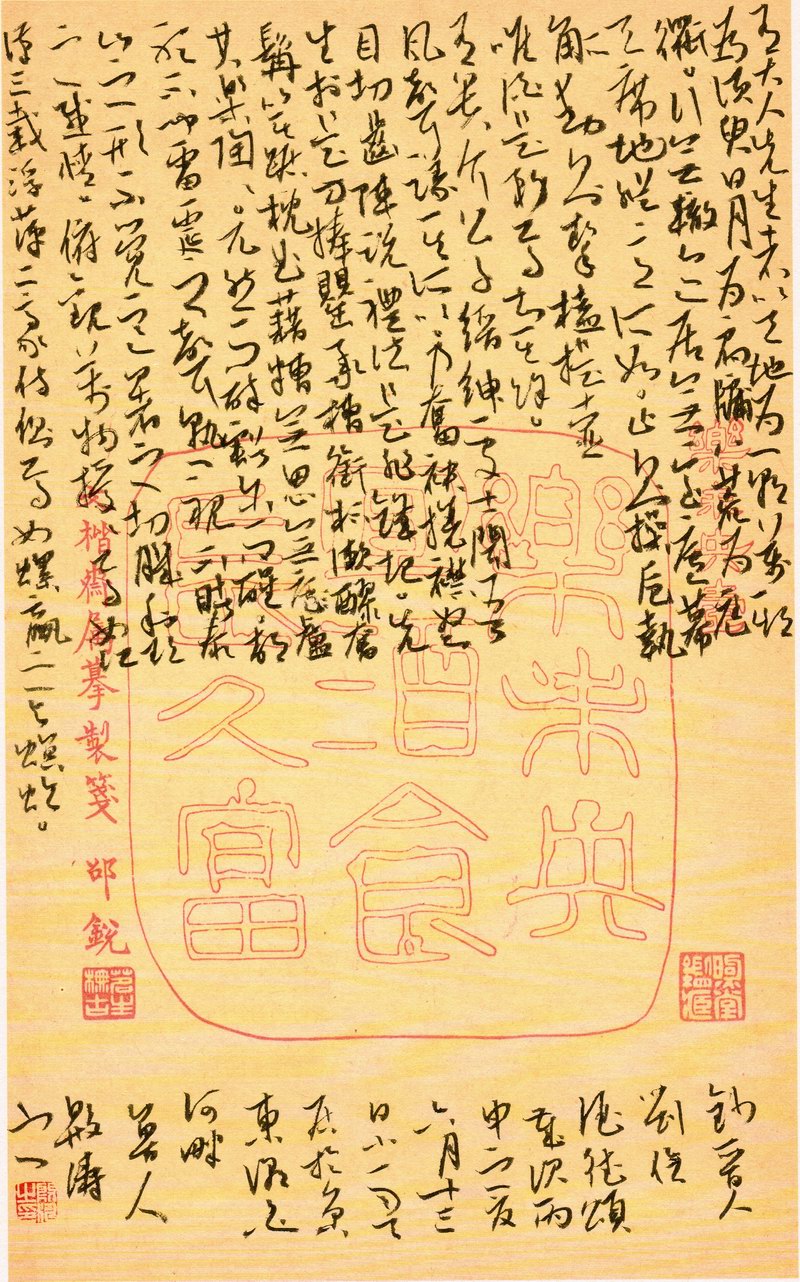 有大人先生者以天地為一朝萬期
為須臾日月為扃牖八荒為庭
衢行無轍迹居無室廬幕
天席地縱意所如止則操卮執
觚動則挈榼提壺
唯酒是務焉知其餘
有貴介公子縉紳處士聞吾
風聲議其所以乃奮袂攘襟怒
目切齒陳說禮法是非鋒起先
生於是方捧罌承槽銜杯漱醪奮
髯箕踞枕麴藉糟無思無慮
其樂陶陶。兀然而醉豁尔而醒静
聽不聞雷霆之聲孰視不睹泰
山之形不覺寒暑之切肌利欲
之感情。俯觀萬物擾擾焉如江
漢之載浮萍二豪侍側焉如蜾蠃之與螟蛉。
樂未央
酒食
長久富
楷齋屬摹製箋 邵銳
鈔晋人
劉伶
酒德頌
歲次丙
申之夏
六月十三
日
居於京
東潞
河畔
莒人
殷濤